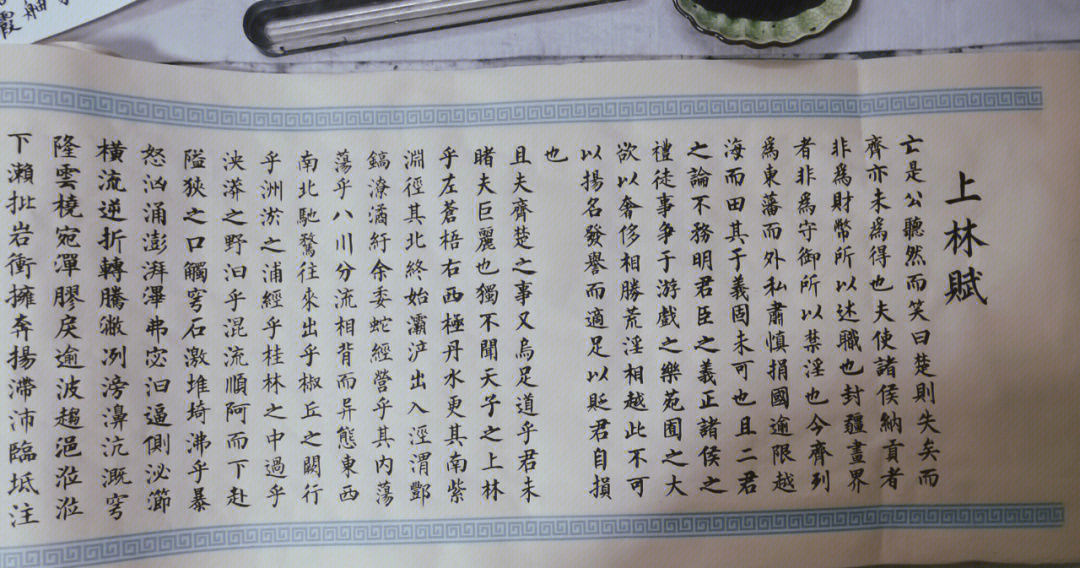 上林賦
亡是公聽然而笑曰楚則失矣而
齊亦未為得也夫使諸侯納貢者
非為財幣所以述職也封疆畫界
者非為守御所以禁淫也今齊列
為東藩而外私肅慎捐國逾限越
海而田其于義固未可也且二君
之論不務明君臣之義正諸侯之
禮徒事爭于游戲之樂苑囿之大
欲以奢侈相勝荒淫相越此不可
以揚名發譽而適足以貶君自損
也
且夫齊楚之事又烏足道乎君未
睹夫巨麗也獨不聞天子之上林
乎左蒼梧右西極丹水更其南紫
淵徑其北終始灞滻出入涇渭酆
鎬潦潏紆余委蛇經營乎其內蕩
蕩乎八川分流相背而异態東西
南北馳騖往來出乎椒丘之闕行
乎洲淤之浦經乎桂林之中過乎
泱漭之野汩乎混流順阿而下赴
隘狹之口觸穹石激堆埼沸乎暴
怒汹涌澎湃滭弗宓汩逼側泌瀄
橫流逆折轉騰潎洌滂濞沆溉穹
隆雲橈宛潬膠戾逾波趨浥涖涖
下瀨批岩衝擁奔揚滯沛臨坻注
舳
霞